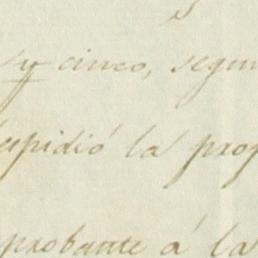 y cinco, segun
cupidió la prop
probante á la